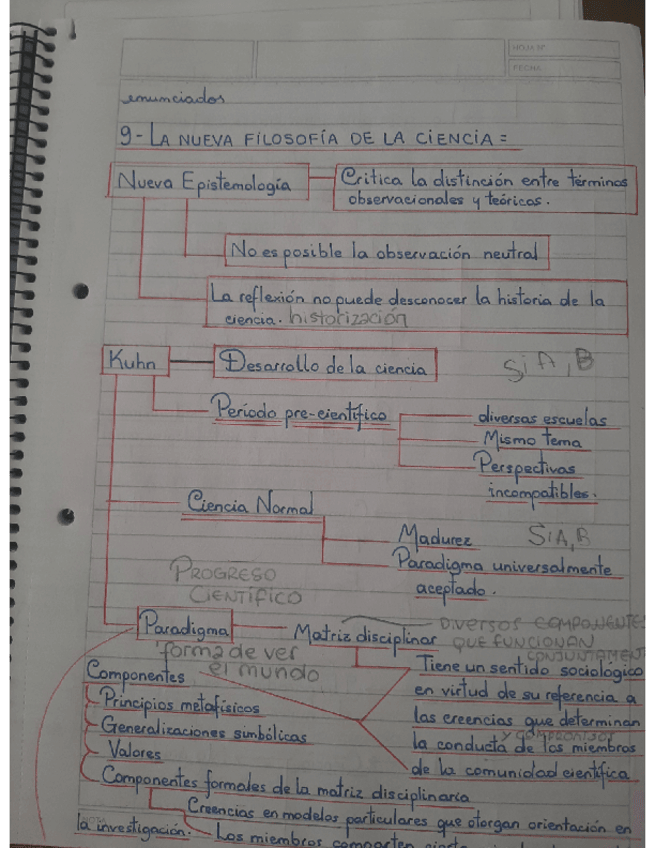 HOJA Nº
FECHA
enunciados
9- LA NUEVA FILOSOFÍA DE LA CIENCIA =
Nueva Epistemología
Critica la distinción entre términos
observacionales y teóricos.
No es posible la observación neutral
La reflexión no puede desconocer la historia de la
ciencia. historización
Kuhn
Desarrollo de la ciencia
Si A, B
Período pre-científico
diversas escuelas
Mismo tema
Perspectivas
incompatibles.
Ciencia Normal
Madurez
Si A, B
Paradigma universalmente
aceptado.
PROGRESO
CIENTÍFICO
Paradigma
Matriz disciplinar
DIVERSOS COMPONENTES
QUE FUNCIONAN
CONJUNTAMEN
forma de ver
el mundo
Tiene un sentido sociológico
en virtud de su referencia a
las creencias que determinan
y compromisos
la conducta de los miembros
de la comunidad científica
Componentes
Principios metafísicos
Generalizaciones simbólicas
Valores
Componentes formales de la matriz disciplinaria
Creencias en modelos particulares que otorgan orientación en
la investigación.
Los miembros comparten